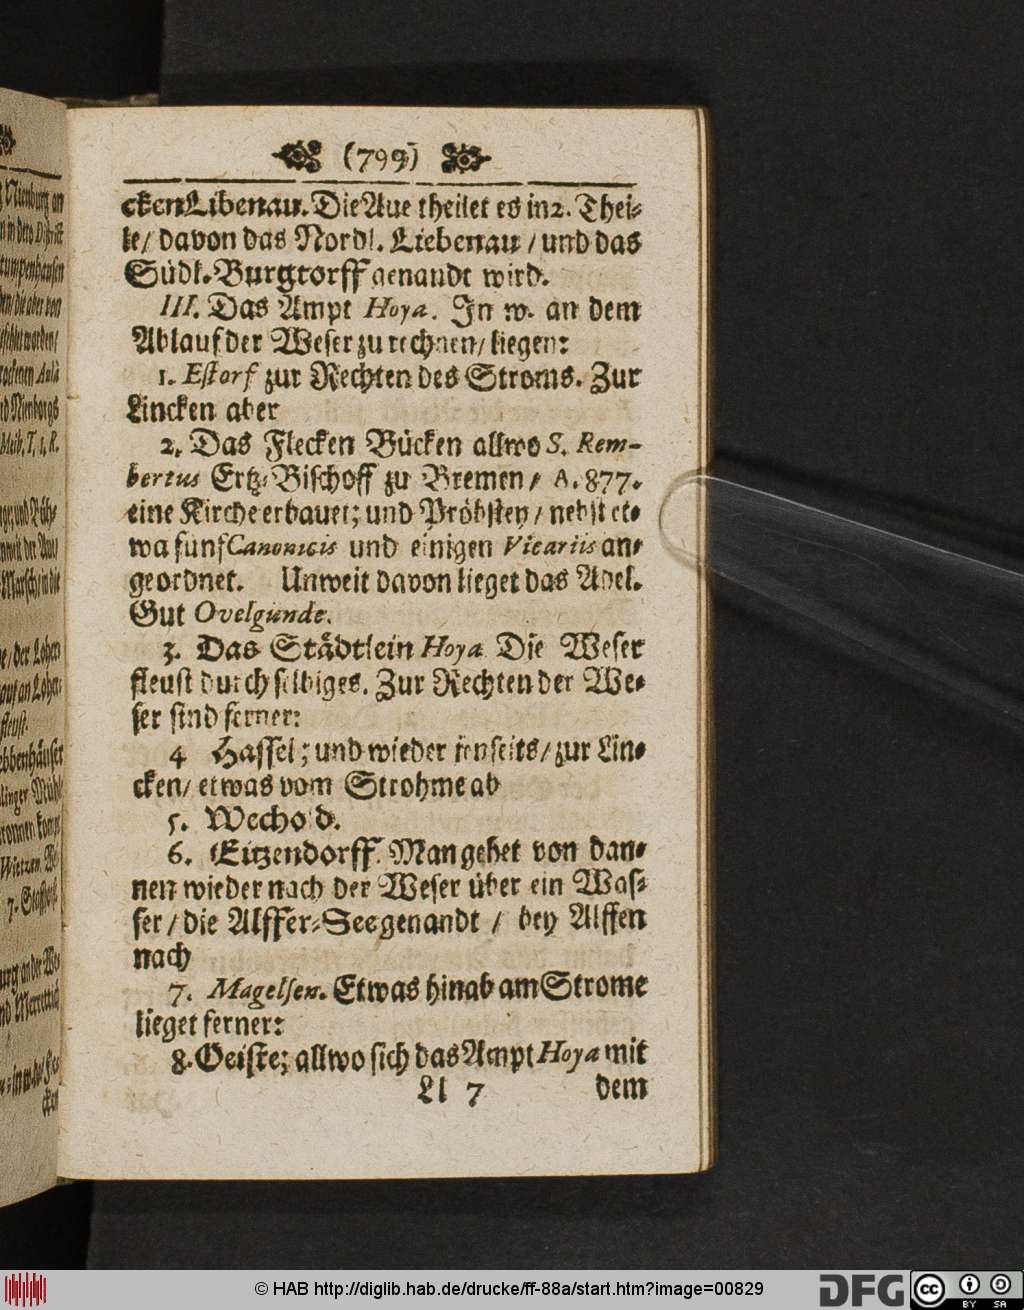 (799)
cken Libenau. Die Aue theilet es in 2. Thei⸗
le/ davon das Nordl. Liebenau / und das
Südl. Burgtorff genandt wird.
III. Das Ampt Hoya. In w. an dem
Ablauf der Weser zu rechnen/ liegen:
1. Estorf zur Rechten des Stroms. Zur
Lincken aber
2. Das Flecken Bücken allwo S. Rem-
bertus Ertz⸗Bischoff zu Bremen / A. 877.
eine Kirche erbauet; und Pröbsten / nebst et⸗
wa funf Canonicis und einigen Vicariis an⸗
geordnet. Unweit davon lieget das Adel.
Gut Ovelgünde.
3. Das Städtlein Hoya Die Weser
fleust durch selbiges. Zur Rechten der We⸗
ser sind ferner:
4 Hassel; und wieder jenseits/ zur Lin⸗
cken/ etwas vom Strohme ab
5. Wechold.
6. Eitzendorff. Man gehet von dan⸗
nen wieder nach der Weser über ein Was⸗
ser / die Alffer⸗See genandt / bey Alffen
nach
7. Magelsen. Etwas hinab am Strome
lieget ferner:
8. Oeiste; allwo sich das Ampt Hoya mit
Ll 7 dem
© HAB http://diglib.hab.de/drucke/ff-88a/start.htm?image=00829
DFG
cc BY SA